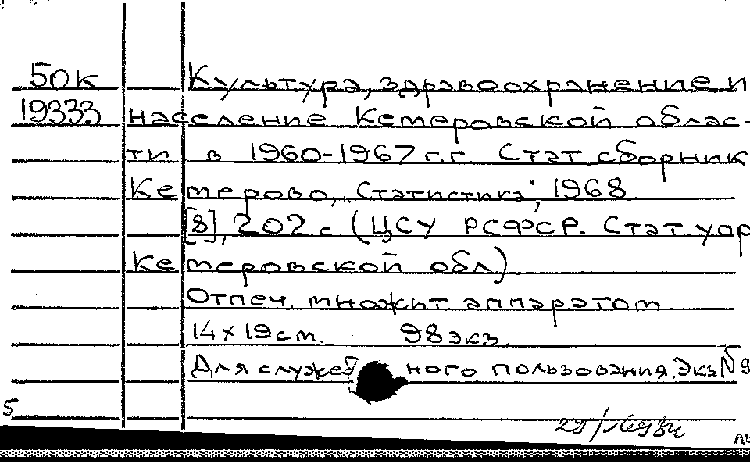 50К Культура, здравоохранение и
19333 население Кемеровской облас-
ти в 1960-1967 г.г. Стат сборник
Кемерово, "Статистика", 1968
[8], 202 с (ЦСУ РСФСР. Стат упр
Кемеровской обл)
Отпеч. множит аппаратом
14×19 см. 98 экз.
Для служебного пользования. Экз №9
5